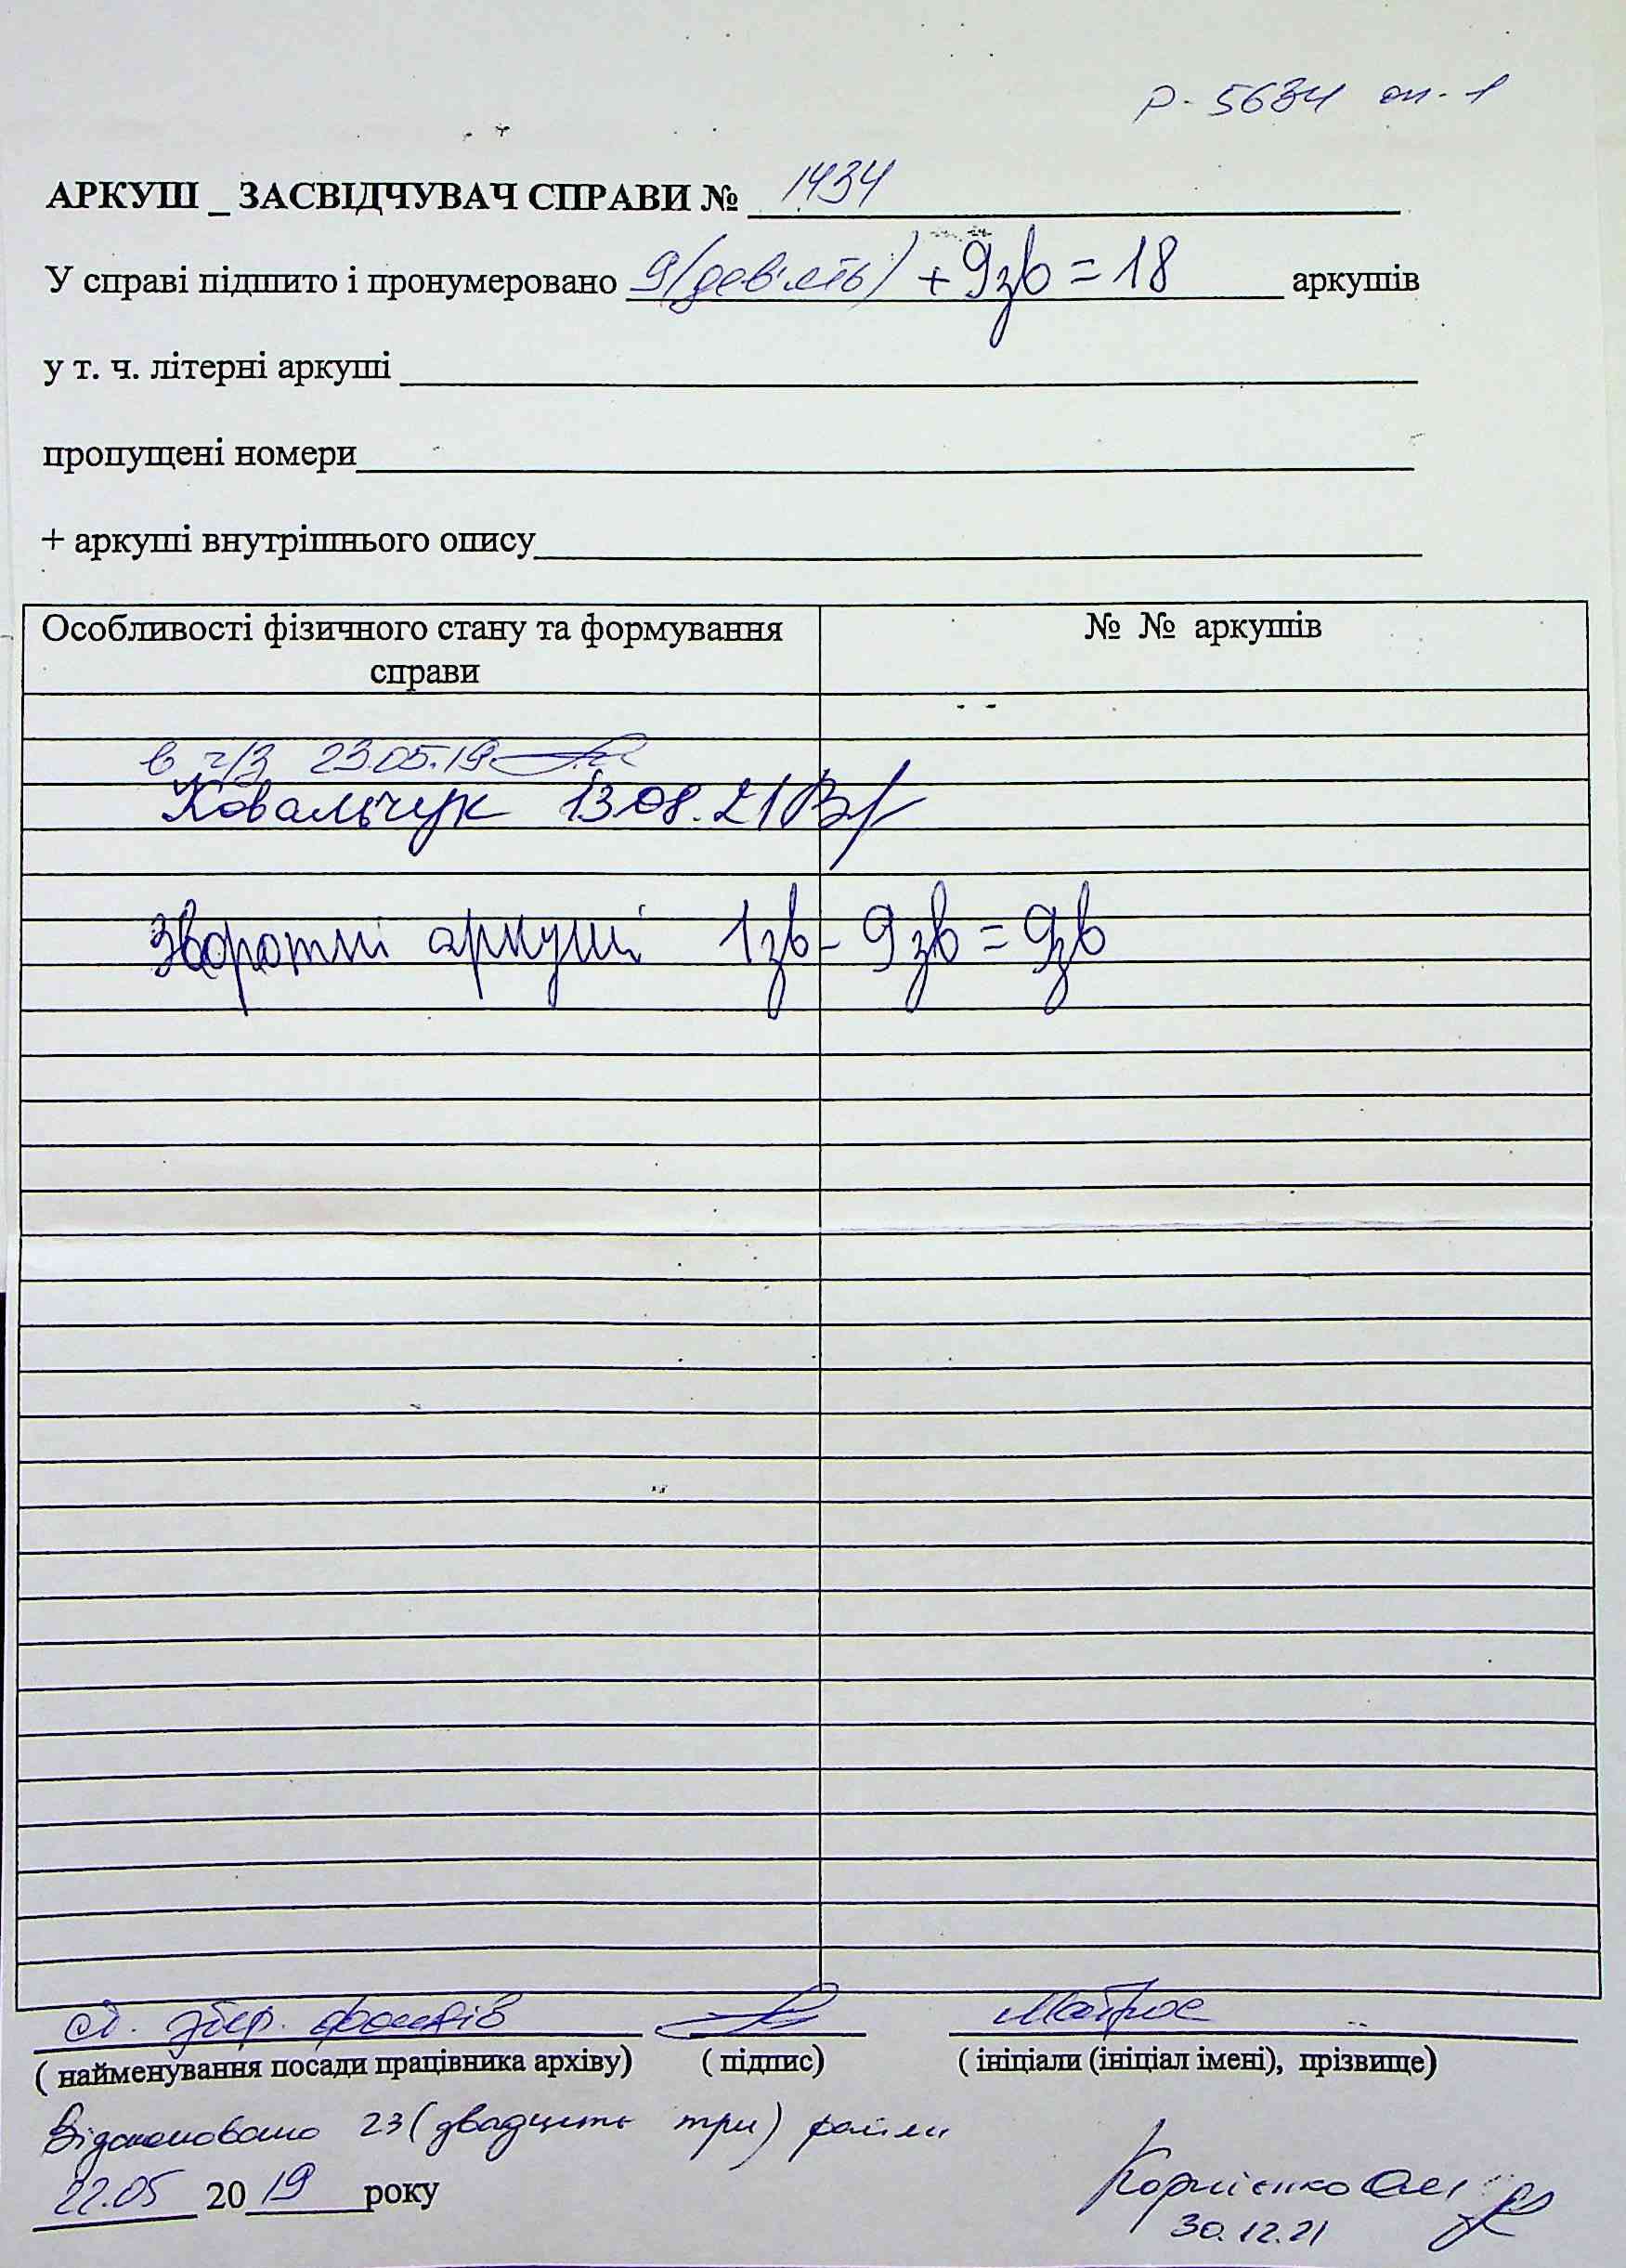 Р-5634 оп-1
АРКУШ _ ЗАСВІДЧУВАЧ СПРАВИ № 1434
У справі підшито і пронумеровано 9(дев'ять) + 9зв = 18 аркушів
у т. ч. літерні аркуші
пропущені номери
+ аркуші внутрішнього опису
Особливості фізичного стану та формування справи № № аркушів
в ч/з 23.05.19
Ковальчук 13.08.21
Зворотні аркуші 1зв - 9зв = 9зв
від. збер. фондів
( найменування посади працівника архіву) ( підпис) ( ініціали (ініціал імені), прізвище)
Відскановано 23 (двадцять три) файли
22.05 2019 року
Корнієнко
30.12.21